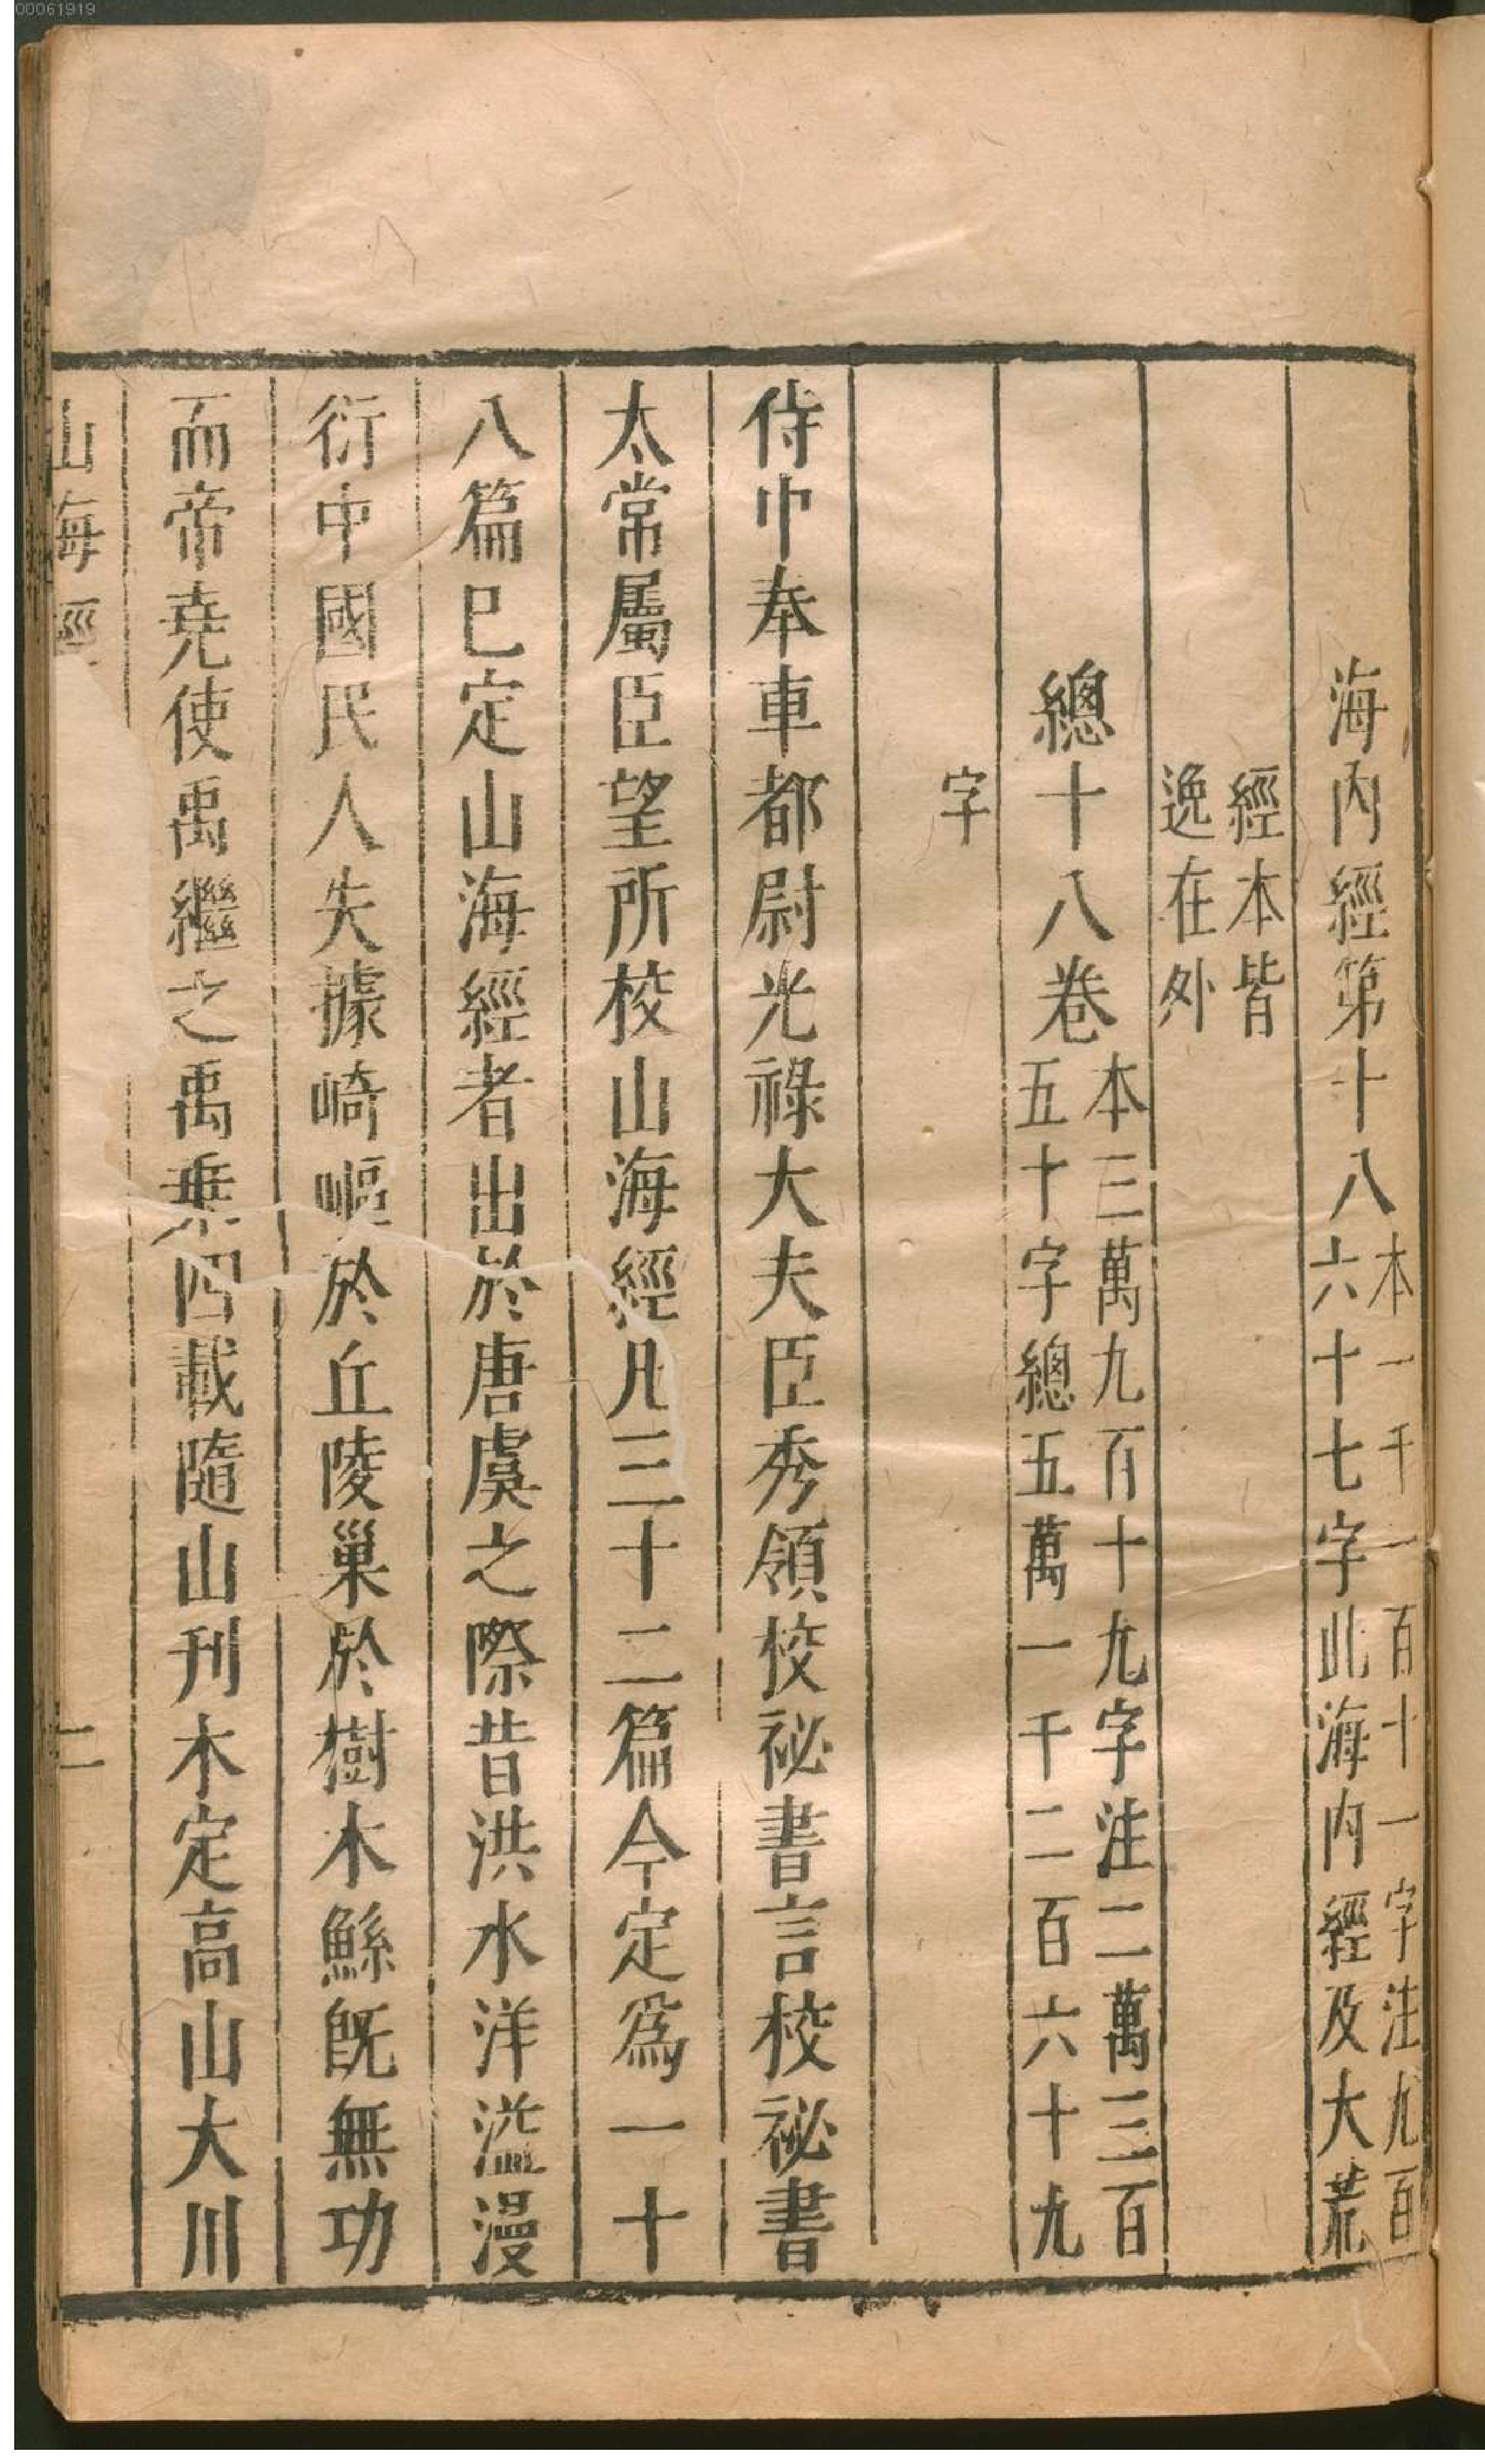 00061919
海內經第十八本一千一百十一字注九百六十七字此海內經及大荒
經本皆逸在外
總十八卷本三萬九百十九字注二萬三百五十字總五萬一千二百六十九
字
侍中奉車都尉光祿大夫臣秀領校祕書言校祕書
太常屬臣望所校山海經凡三十二篇今定爲一十
八篇已定山海經者出於唐虞之際昔洪水洋溢漫
衍中國民人失據崎嶇於丘陵巢於樹木鯀旣無功
而帝堯使禹繼之禹乗四載隨山刊木定高山大川
山海經
二